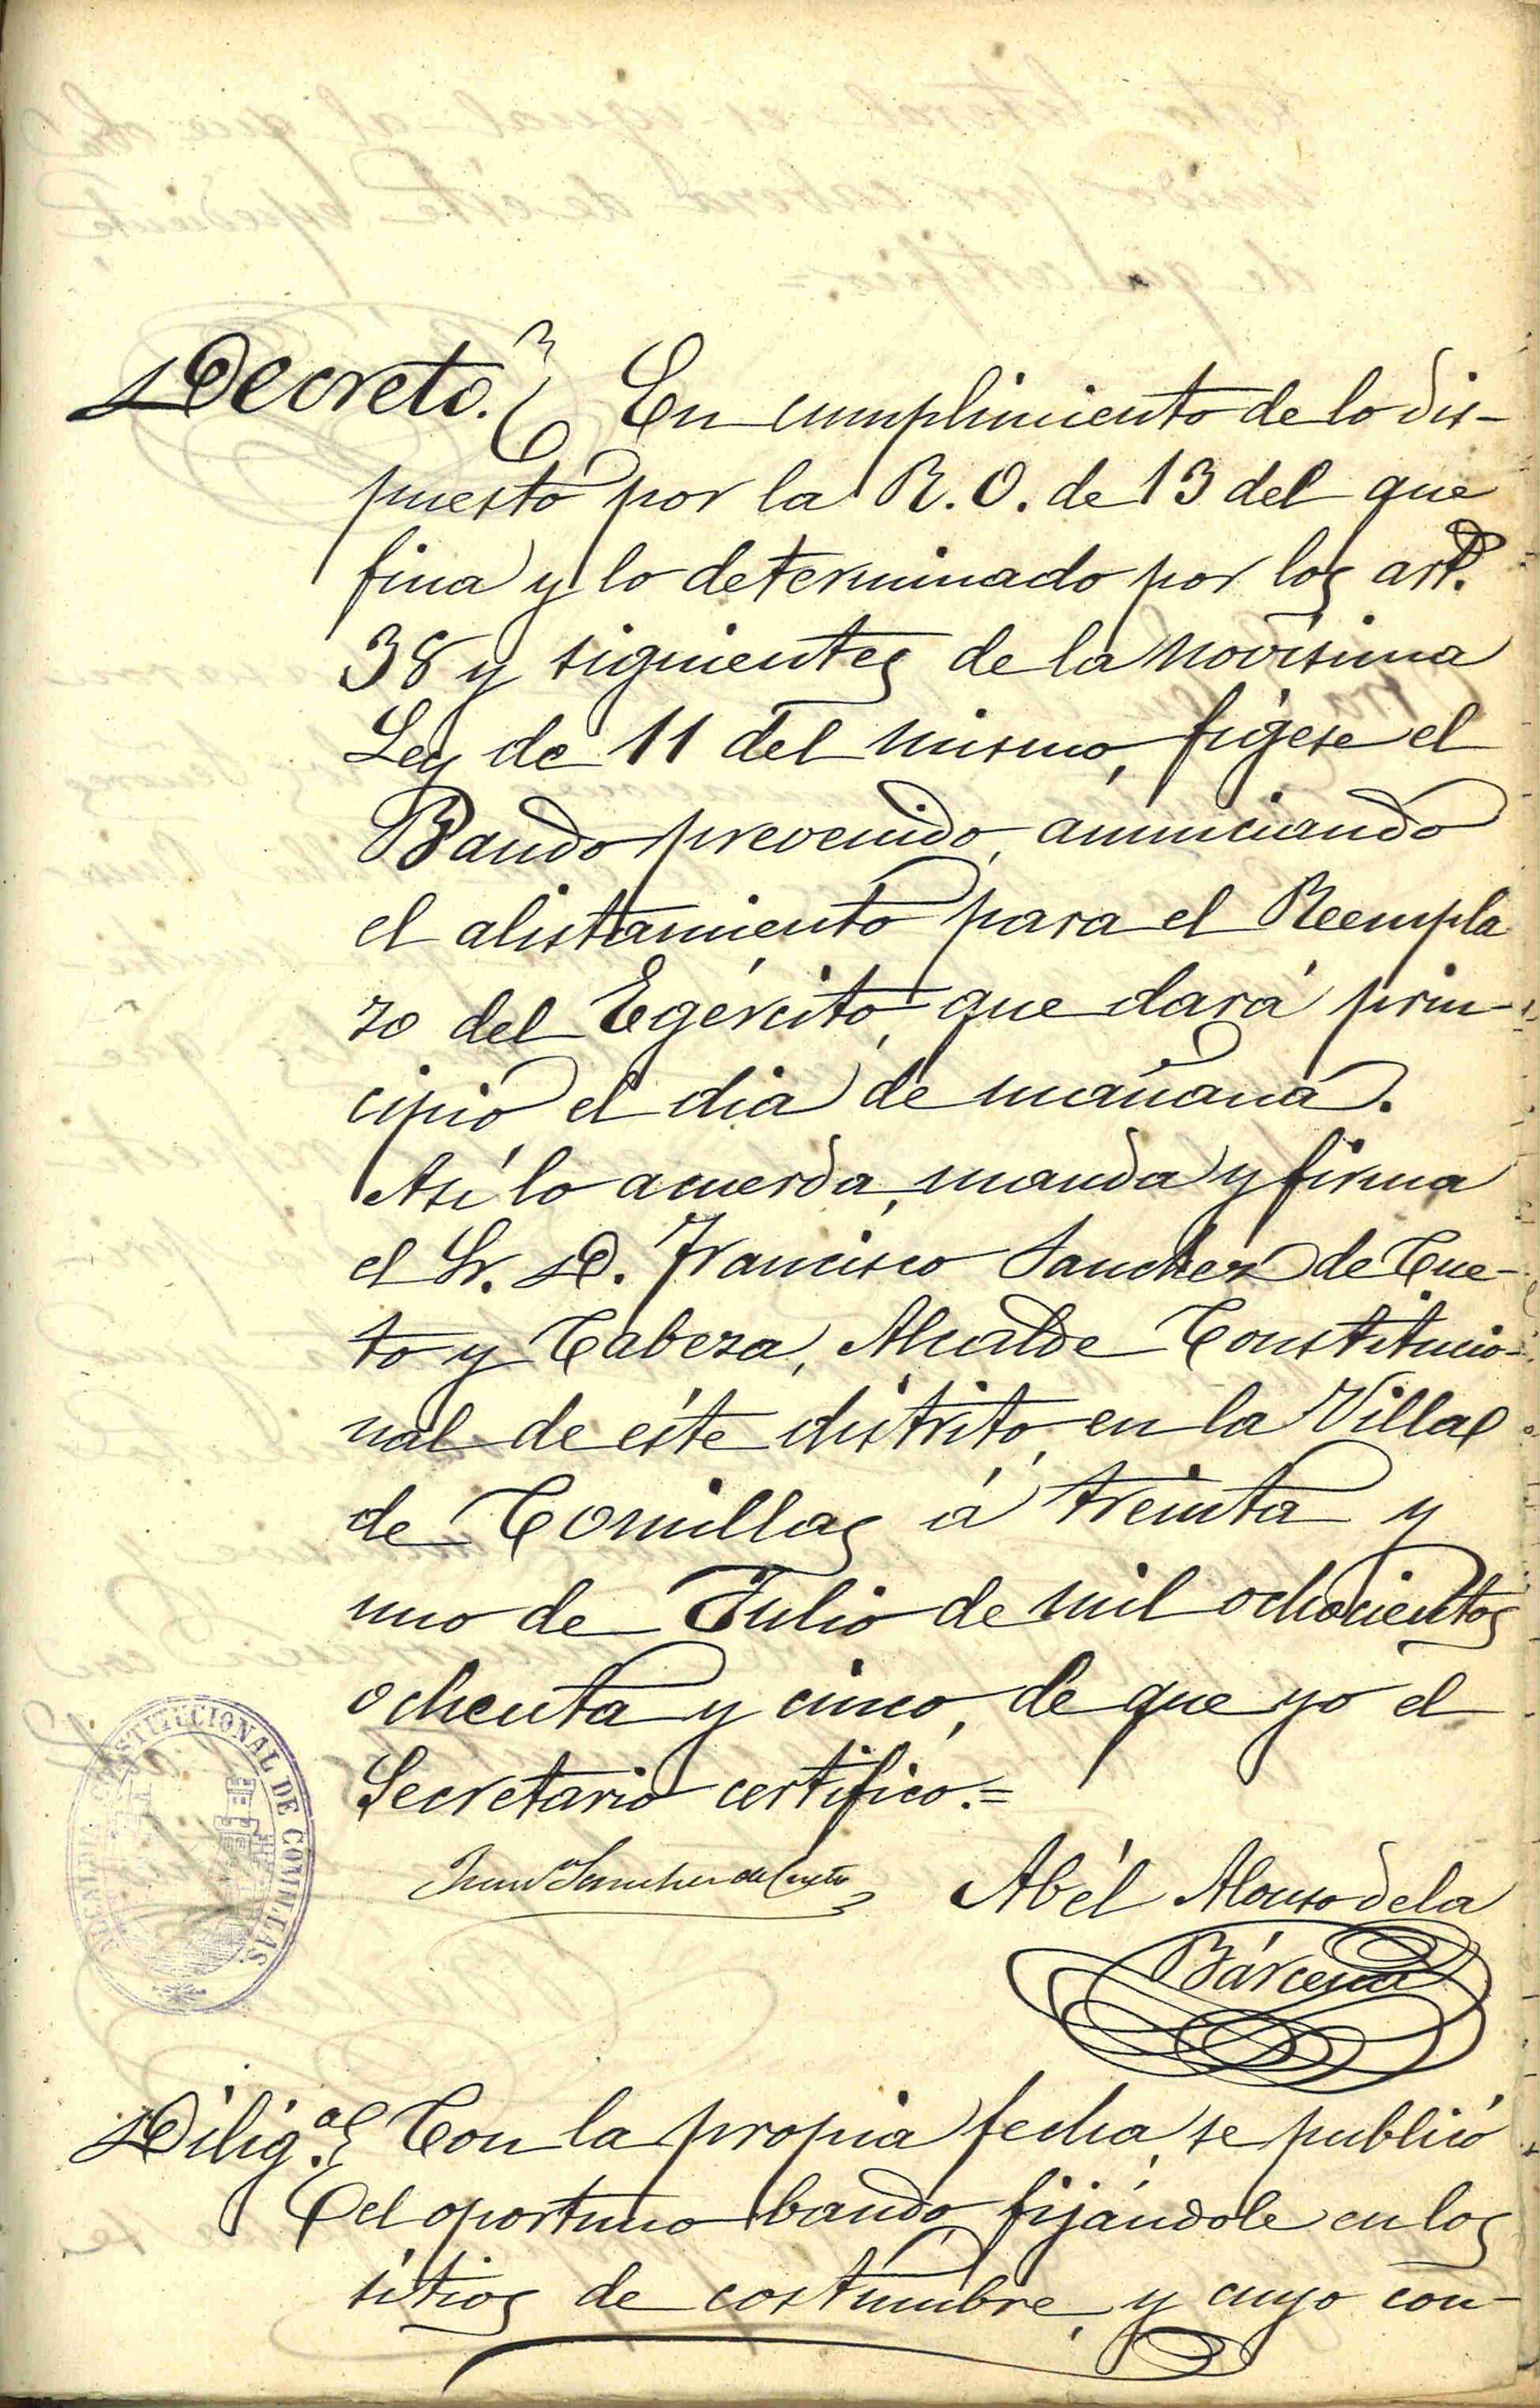 Decreto. En cumplimiento de lo dis-
puesto por la R. O. de 13 del que
fina y lo determinado por los art.s
38 y siguientes de la novísima
Ley de 11 del mismo, fígese el
Bando prevenido, anunciando
el alistamiento para el Reempla
zo del Egército, que dará prin-
cipio el dia de mañana.
Así lo acuerda, manda y firma
el Sr. D. Francisco Sanchez de Cue-
to y Cabeza, Alcalde Constitucio-
nal de éste distrito, en la Villa
de Comillas á treinta y
uno de Julio de mil ochocientos
ochenta y cinco, de que yo el
Secretario certifico.=
ALCALDIA CONSTITUCIONAL DE COMILLAS.
Sanchez de Cueto
Abél Alonso de la
Bárcena
Dilig.a Con la propia fecha, se publicó
el oportuno bando, fijándole en los
sitios de costumbre, y cuyo con-